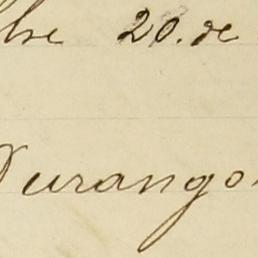 bre 20. de
Durango